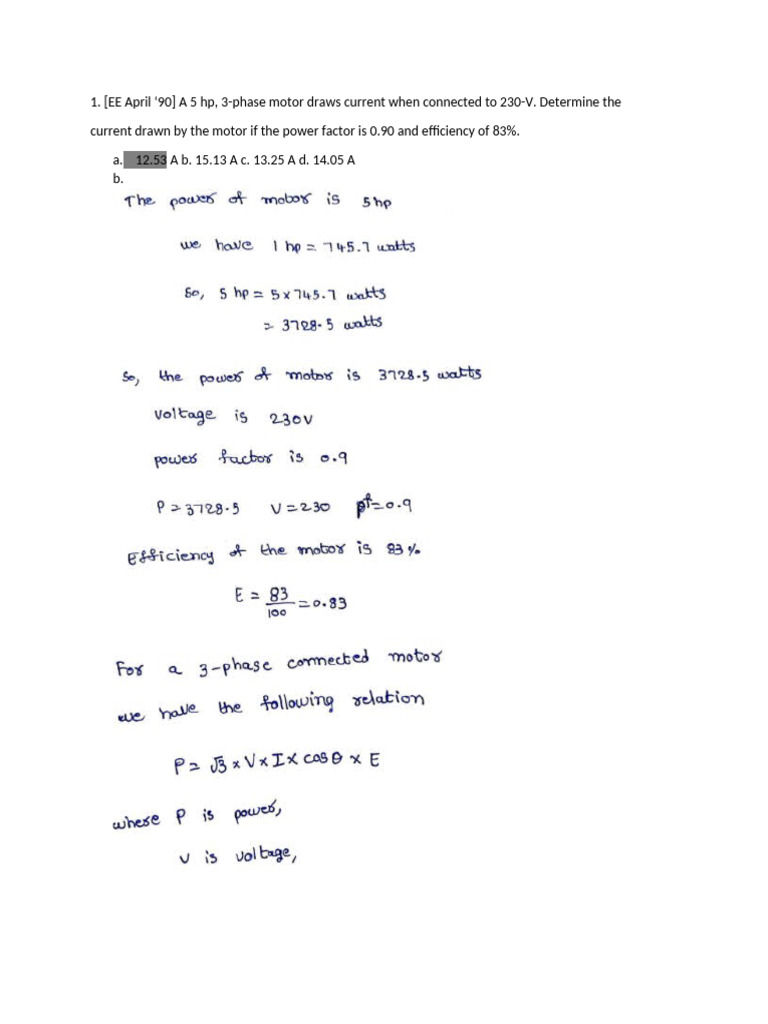 1. [EE April '90] A 5 hp, 3-phase motor draws current when connected to 230-V. Determine the
current drawn by the motor if the power factor is 0.90 and efficiency of 83%.
a. 12.53 A b. 15.13 A c. 13.25 A d. 14.05 A
b.
The power of motor is 5 hp
we have 1 hp = 745.7 watts
So, 5 hp = 5 x 745.7 watts
= 3728.5 watts
So, the power of motor is 3728.5 watts
voltage is 230V
power factor is 0.9
P = 3728.5 V = 230 pf = 0.9
Efficiency of the motor is 83 %
E = 83/100 = 0.83
For a 3-phase connected motor
we have the following relation
P = √3 x V x I x cos θ x E
where P is power,
V is voltage,